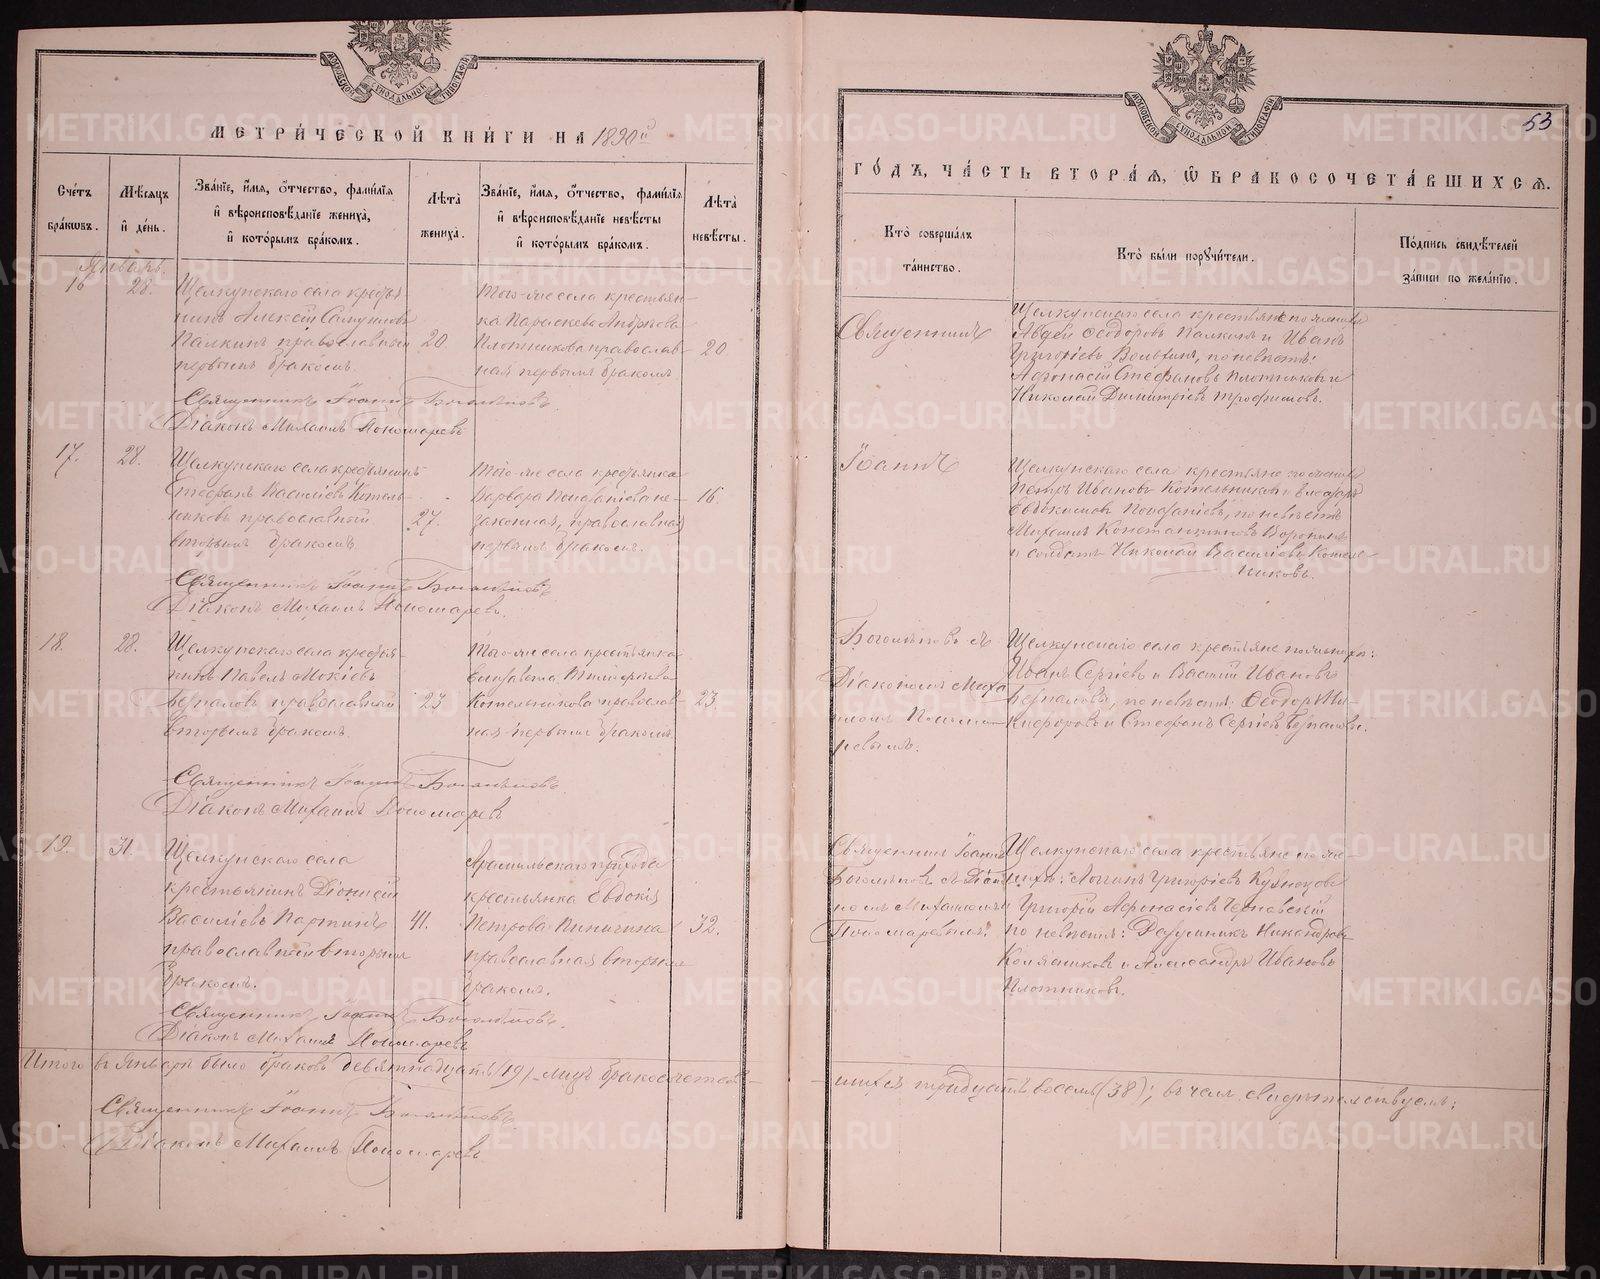 МОСКОВСКОЙ СУНОДАЛЬНОЙ ТИПОГРАФІИ
МЕТРИ́ЧЕСКОЙ КНИ́ГИ НА 1890 й
Сче́тъ бра́кѡвъ.
Мѣ́сяцъ и҆ де́нь.
Зва́нїе, и҆́мя, ѻ҆́тчество, фами́лїя
и҆ вѣроисповѣ́данїе жениха̀,
и҆ кото́рымъ бра́комъ.
Лѣ́та жениха̀.
Зва́нїе, и҆́мя, ѻ҆́тчество, фами́лїя
и҆ вѣроисповѣ́данїе невѣ́сты
и҆ кото́рымъ бра́комъ.
Лѣ́та невѣ́сты.
Январь.
16 28.
Щелкунскаго села крестья-
нинъ Алексій Самуиловъ
Палкинъ православный
первымъ бракомъ.
20
Того-же села крестьян-
ка Параскева Андреева
Плотникова православ-
ная первымъ бракомъ
20
Священникъ Іоаннъ Боголѣповъ.
Діаконъ Михаилъ Пономаревъ
17. 28.
Щелкунскаго села крестьянинъ
Стефанъ Василіевъ Котель-
никовъ православный
вторымъ бракомъ
27.
Того-же села крестьянка
Варвара не-
законная, православная
первымъ бракомъ.
16.
Священникъ Іоаннъ Боголѣповъ
Діаконъ Михаилъ Пономаревъ.
18. 28.
Щелкунскаго села крестья-
нинъ Павелъ Мокіевъ
Берналовъ православный
вторымъ бракомъ.
23
Того-же села крестьянка
Елисавета
Котельникова православ-
ная первымъ бракомъ
23.
Священникъ Іоаннъ Боголѣповъ.
Діаконъ Михаилъ Пономаревъ
19. 31.
Щелкунскаго села
крестьянинъ Діонисій
Василіевъ Партинъ
православный вторымъ
бракомъ.
41.
Арамильскаго прихода
крестьянка Евдокія
Петрова Пиничина
православная вторымъ
бракомъ.
32.
Священникъ Іоаннъ Боголѣповъ.
Діаконъ Михаилъ Пономаревъ
Итого въ Январѣ было браковъ девятнадцать (19) лицъ бракосочетав-
Священникъ Іоаннъ Боголѣповъ
Діаконъ Михаилъ Пономаревъ
53
МОСКОВСКОЙ СУНОДАЛЬНОЙ ТИПОГРАФІИ
ГО́ДЪ, ЧА́СТЬ ВТОРА́Я, Ѡ҆ БРАКОСОЧЕТА́ВШИХСЯ.
Кто̀ соверша́лъ
та́инство.
Кто̀ бы́ли порꙋчи́тели.
По́дпись свидѣ́телей
за́писи по жела́нїю.
Священникъ
Іоаннъ
Боголѣповъ съ
Діакономъ Миха
иломъ Понома
ревымъ.
Щелкунскаго села крестьяне по женихѣ
Авдей Ѳеодоровъ Палкинъ и Иванъ
Григоріевъ , по невѣстѣ:
Афонасій Стефановъ Плотниковъ и
Николай Димитріевъ Трофимовъ.
Щелкунскаго села крестьяне по женихѣ
Петръ Ивановъ Котельниковъ и
Евдокимовъ , по невѣстѣ
Михаилъ Константиновъ Воронинъ
и солдатъ Николай Василіевъ Котель-
никовъ.
Щелкунскаго села крестьяне по женихѣ:
Иванъ Сергіевъ и Василій Ивановъ
Берналовы, по невѣстѣ: Ѳеодоръ Ни-
кифоровъ и Стефанъ Сергіевъ Берналовы.
Священникъ Іоаннъ
Боголѣповъ съ Діако
номъ Михаиломъ
Пономаревымъ.
Щелкунскаго села крестьяне по же-
нихѣ: Логинъ Григоріевъ Кузнецовъ
Григорій Афонасіевъ Чернавскій
по невѣстѣ: Никандровъ
Комяниковъ и Александръ Ивановъ
Плотниковъ.
шихся тридцать восемь (38); въ чемъ свидѣтельствуемъ:
METRIKI.GASO-URAL.RU